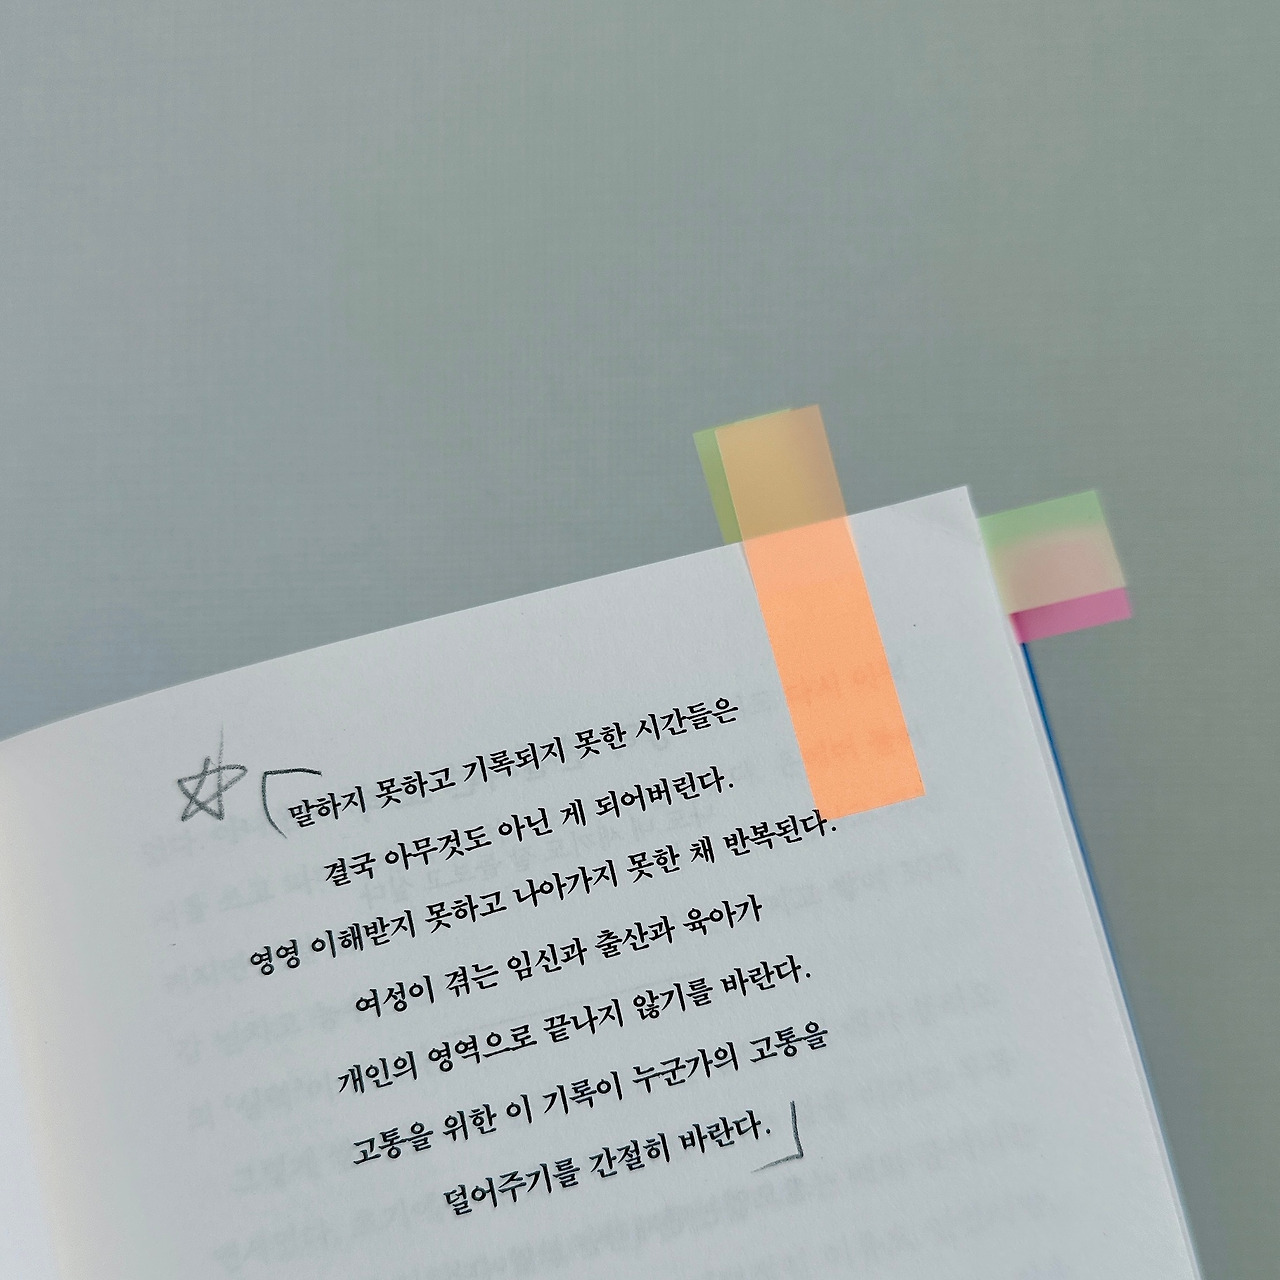 말하지 못하고 기록되지 못한 시간들은
결국 아무것도 아닌 게 되어버린다.
영영 이해받지 못하고 나아가지 못한 채 반복된다.
여성이 겪는 임신과 출산과 육아가
개인의 영역으로 끝나지 않기를 바란다.
고통을 위한 이 기록이 누군가의 고통을
덜어주기를 간절히 바란다.